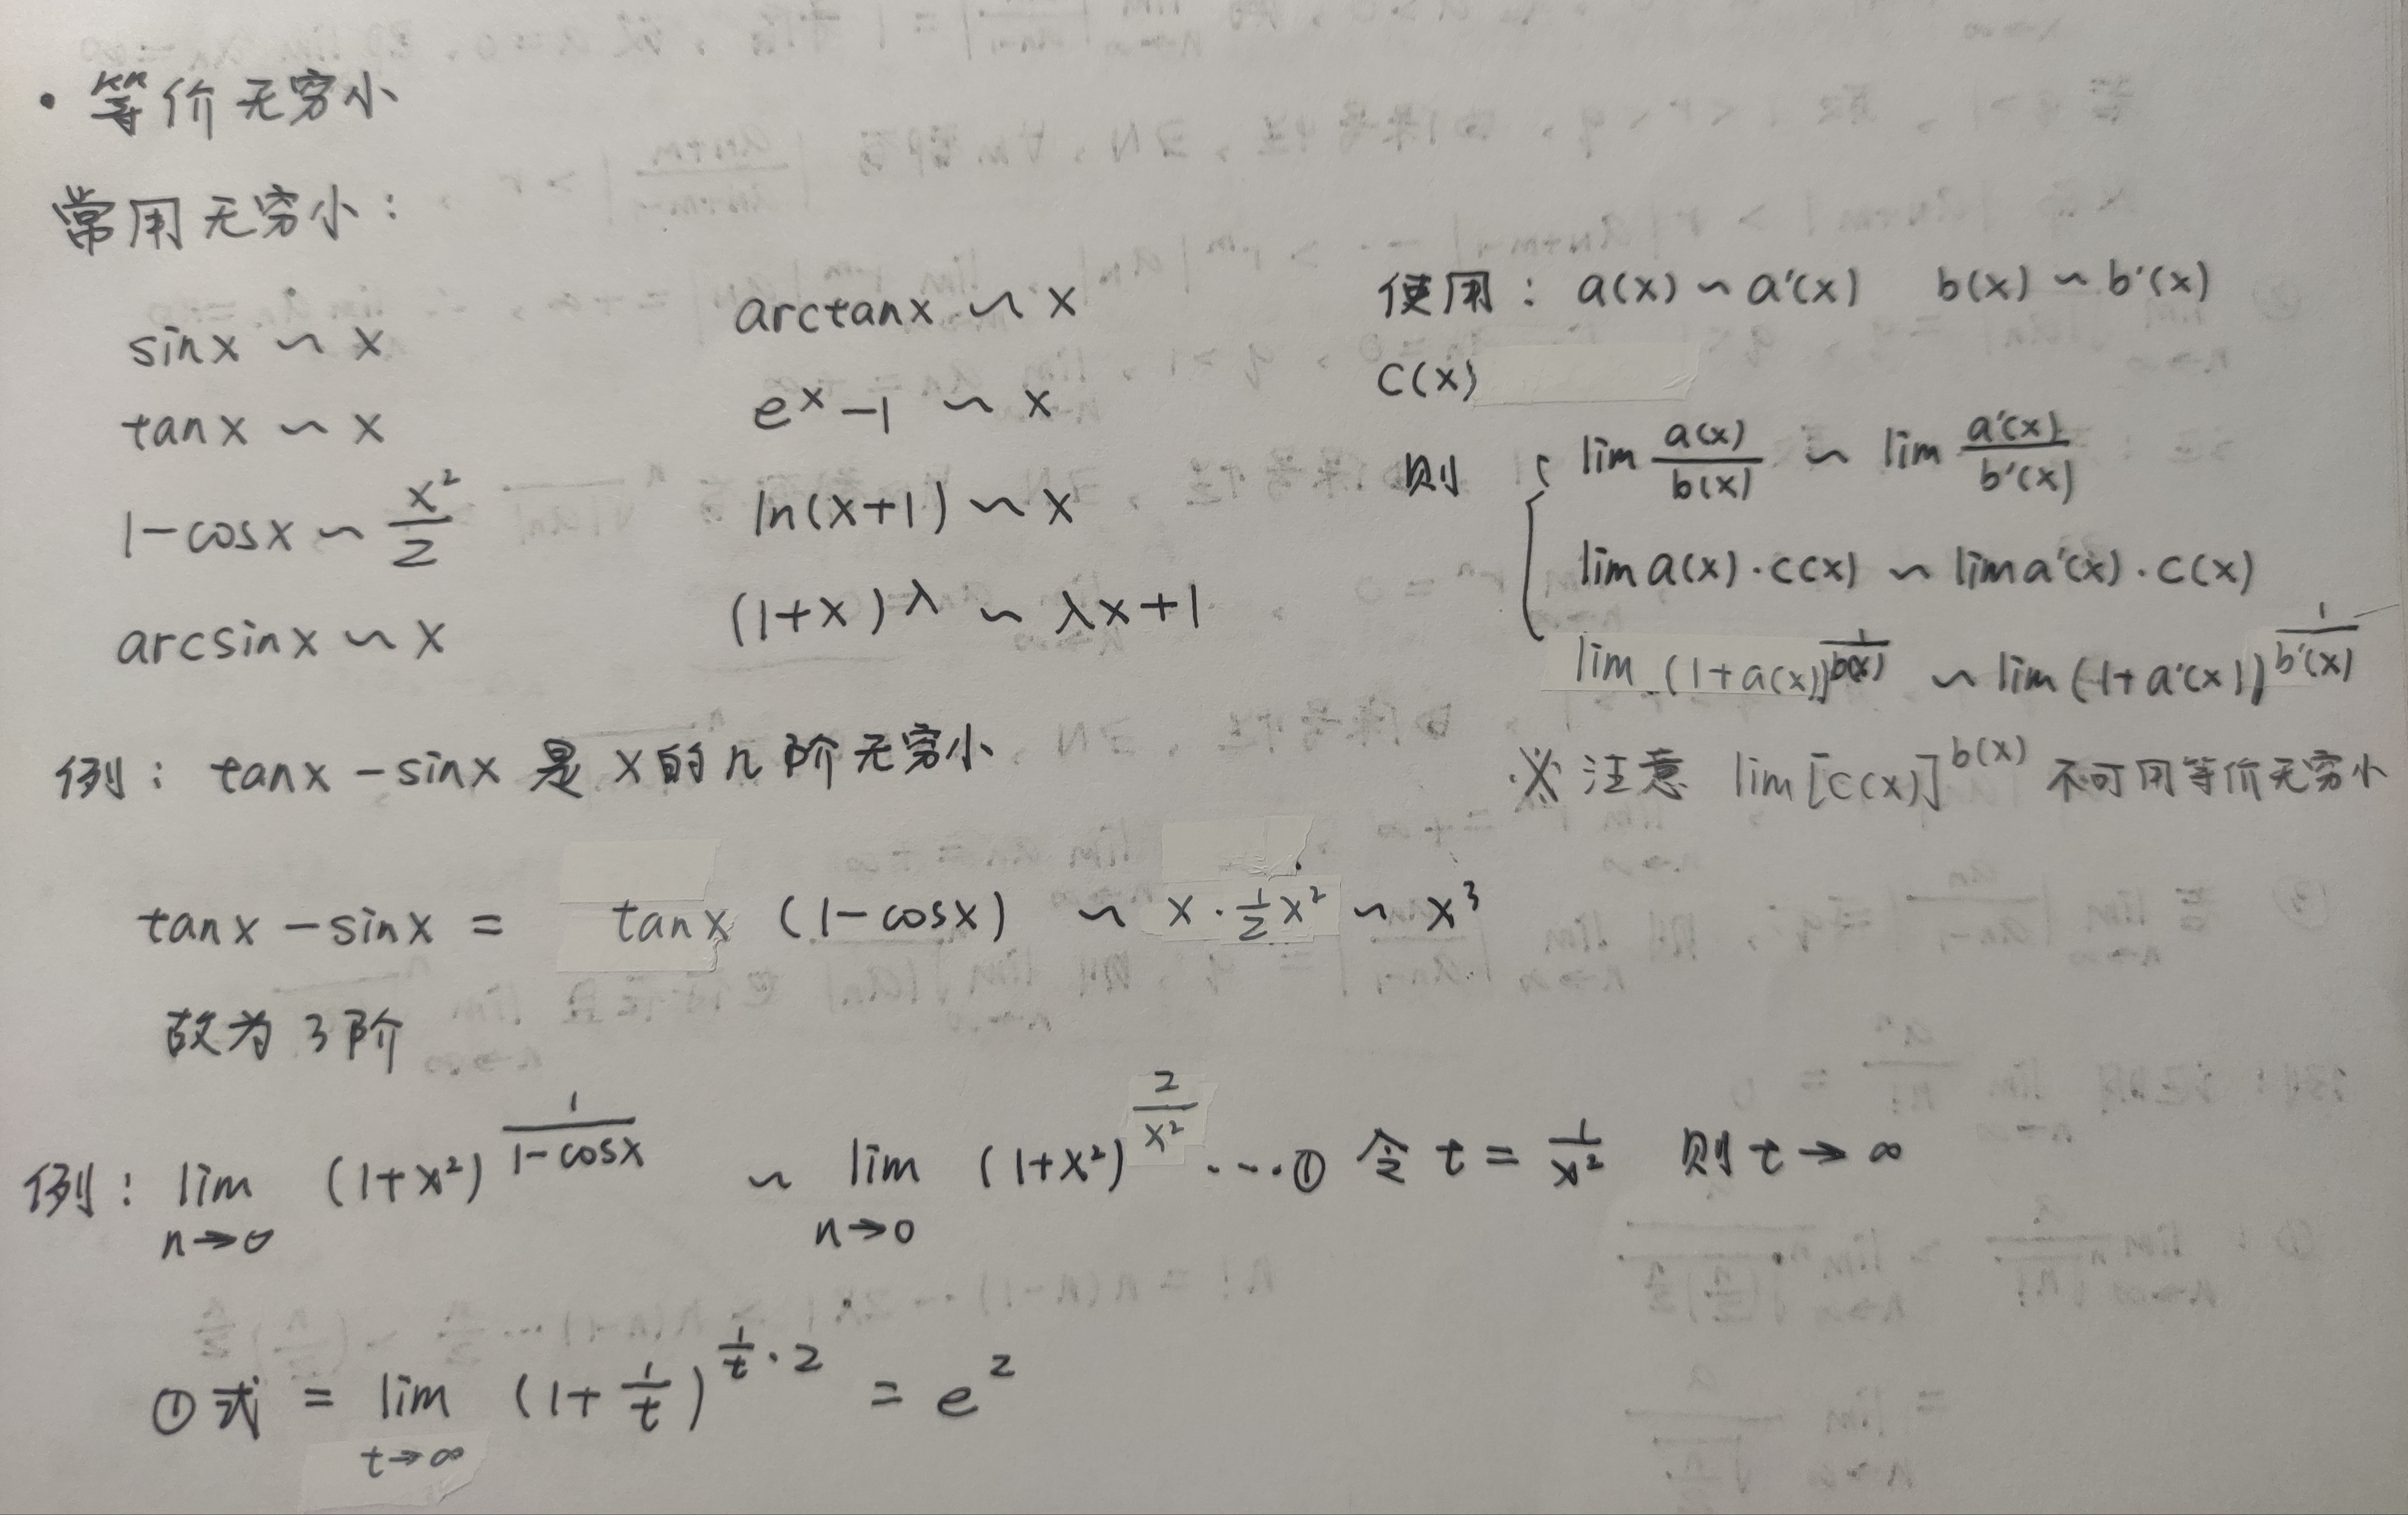 · 等价无穷小
常用无穷小：
sinx ~ x
tanx ~ x
1-cosx ~ x²/2
arcsinx ~ x
arctanx ~ x
eˣ-1 ~ x
ln(x+1) ~ x
(1+x)^λ ~ λx+1
使用：a(x) ~ a'(x)  b(x) ~ b'(x)
c(x)
则 { lim a(x)/b(x) ~ lim a'(x)/b'(x)
lim a(x)·c(x) ~ lim a'(x)·c(x)
lim (1+a(x))^(1/b(x)) ~ lim (1+a'(x))^(1/b'(x))
※ 注意 lim[c(x)]^b(x) 不可用等价无穷小
例：tanx-sinx 是 x的几阶无穷小
tanx-sinx = tanx (1-cosx) ~ x·½x² ~ x³
故为3阶
例：lim n→0 (1+x²)^(1/(1-cosx)) ~ lim n→0 (1+x²)^(2/x²) ····① 令 t = 1/x² 则 t→∞
①式 = lim t→∞ (1+1/t)^(1/t·2) = e²